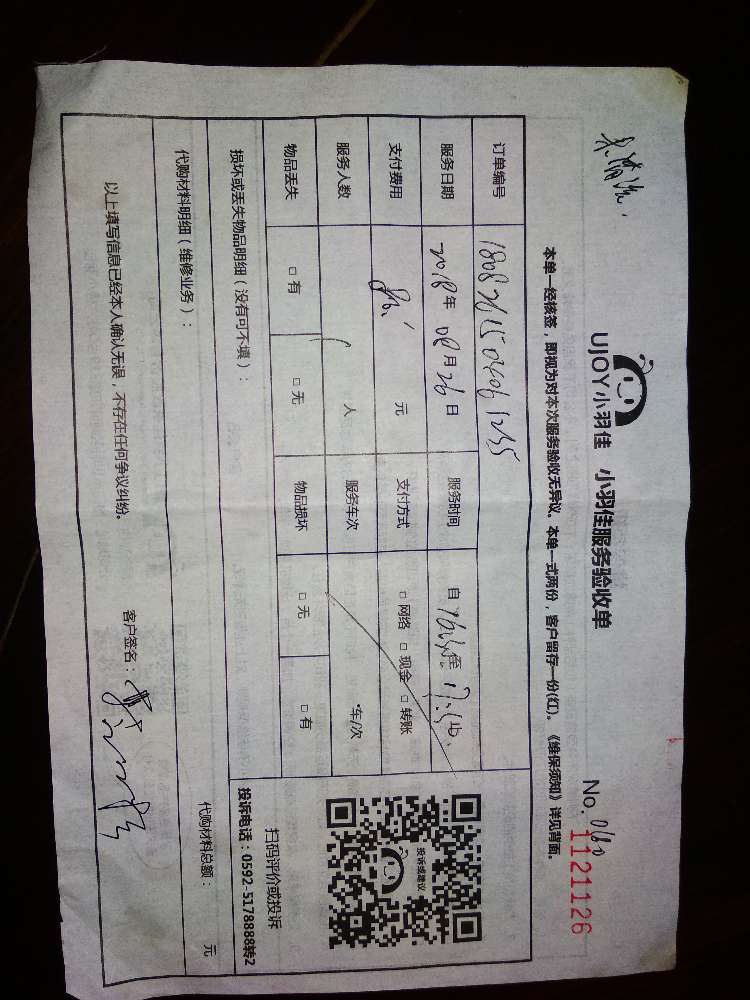 UJOY小羽佳 小羽佳服务验收单
No. 0180
1121126
本单一经核签，即视为对本次服务验收无异议。本单一式两份，客户留存一份(红)。《维保须知》详见背面。
订单编号
服务日期 2018年 08月 26日 服务时间 自 至
支付费用 元 支付方式 □网络 □现金 □转账
服务人数 人 服务车次 车/次
物品丢失 □有 □无 物品损坏 □无 □有
投诉或建议
扫码评价或投诉
投诉电话：0592-5178888转2
损坏或丢失物品明细（没有可不填）：
代购材料明细（维修业务）： 代购材料总额： 元
以上填写信息已经本人确认无误，不存在任何争议纠纷。 客户签名：